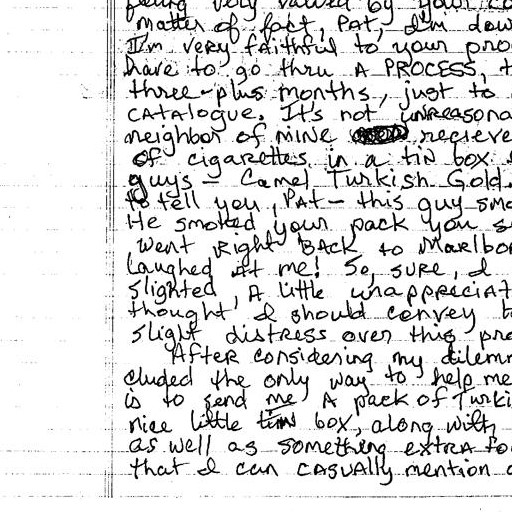 being very valued by your co
matter of fact, PAT, I'm dow
I'm very faithful to your pro
have to go thru A PROCESS, t
three-plus months, just to
CATALOGUE. It's not unreasona
neighbor of mine recieve
of cigarettes in a tin box
guys - Camel Turkish Gold.
to tell you, PAT - this guy smo
He smoked your pack you s
went right BACK to Marlbor
laughed at me! So, sure, I
slighted, A little unappreciat
thought I should convey
slight distress over this pro
After considering my dilemm
cluded the only way to help me
is to send me A pack of Turki
nice little tin box, along with
as well as something extra fo
that I can casually mention